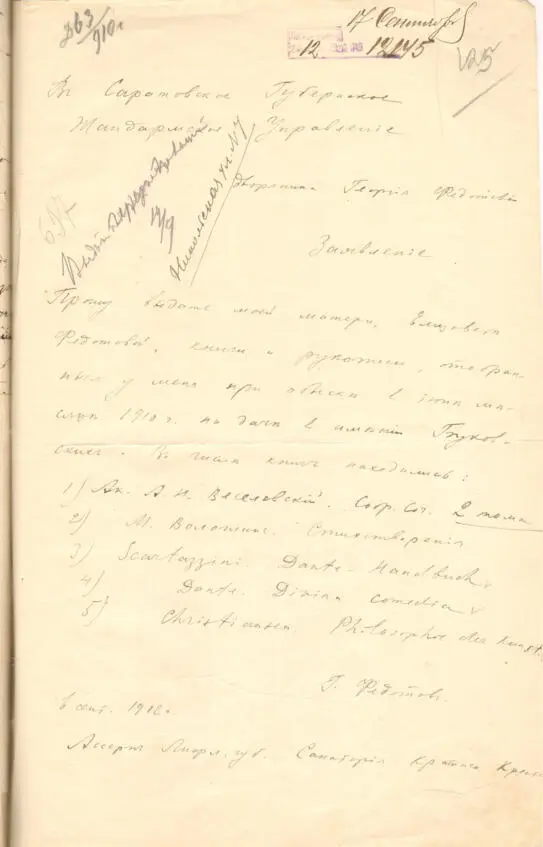 363/910г
17 Сентября
12 12145
125
Въ Саратовское Губернское
Жандармское Управленіе
Дворянина Георгія Федотова
697
14/9
Никольская ул № 7
Заявленіе.
Прошу выдать моей матери, Елизаветѣ
Федотовой, книги и рукописи, отобран-
ныя у меня при обыскѣ въ іюнѣ мѣ-
сяцѣ 1910 г. на дачѣ въ имѣніи
скихъ. Въ числѣ книгъ находились:
1) Ак. А. Н. Веселовскій. Собр. Соч. 2 тома
2) М. Волошинъ. Стихотворенія
3) Scartazzini. Dante-Handbuch
4) Dante. Divina Comedia
5) Christiansen Philosophie der Kunst.
Г. Федотов.
6 сент. 1912 г.
Ассернъ Лифл. губ. Санаторія Краснаго Креста